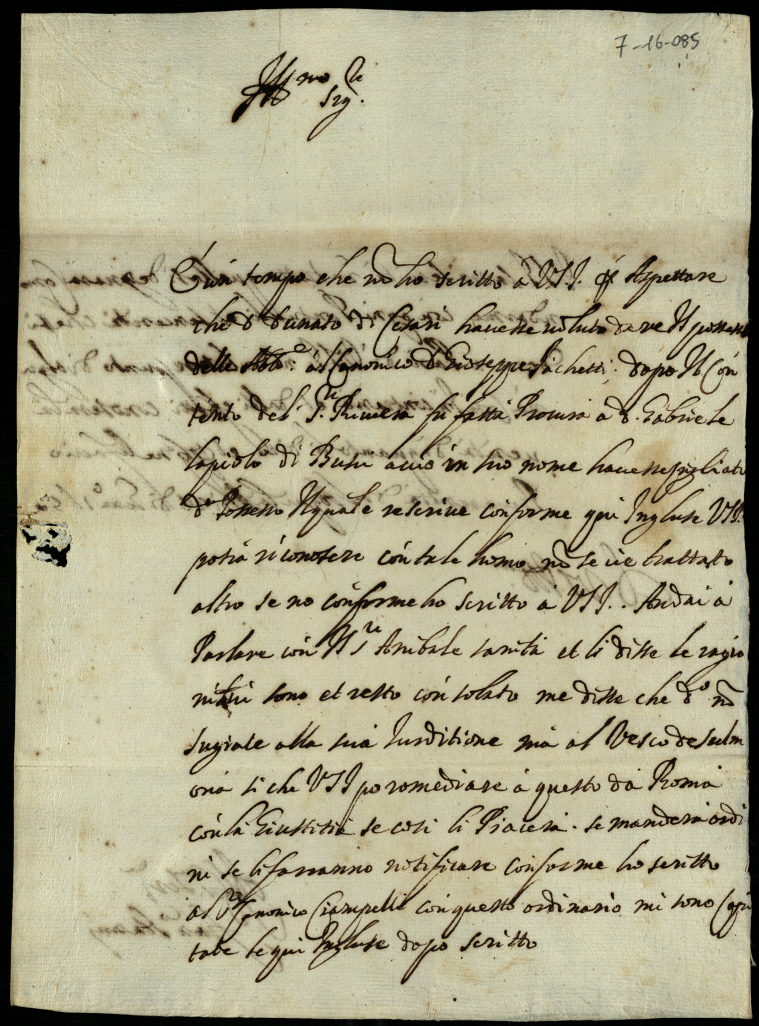 7-16-085
Ill.mo Sig.re
È un tempo che nõ ho scritto à VSI. Aspettare
che D Donato di Cesari havesse voluto dare Il possesso
della al Canonico D Giuseppe Pachetti. dopo Il Con
tento del S.re Rivera fù fatta Procura a D. Gabriele
di acciò in suo nome havesse pigliato
d.o Possesso Il quale rescrive conforme qui Incluse VSI.
potrà riconoscere con tale homo nõ se ci è trattato
altro se no conforme ho scritto à VSI. Andai à
Parlare con Il S.re Anibale et li disse le ragio
ni sono et resto consolato me disse che d.o nõ
alla sua Iurditione mà al Vesco de Sulm
ona si che VSI po romediare à questo da Roma
con la Giustitia se così li Piacerà. se manderà ordi
ni se li farranno notificare conforme ho scritto
al Canonico Ciampelli con questo ordinario mi sono Capi
tate le qui Incluse dopo scritto